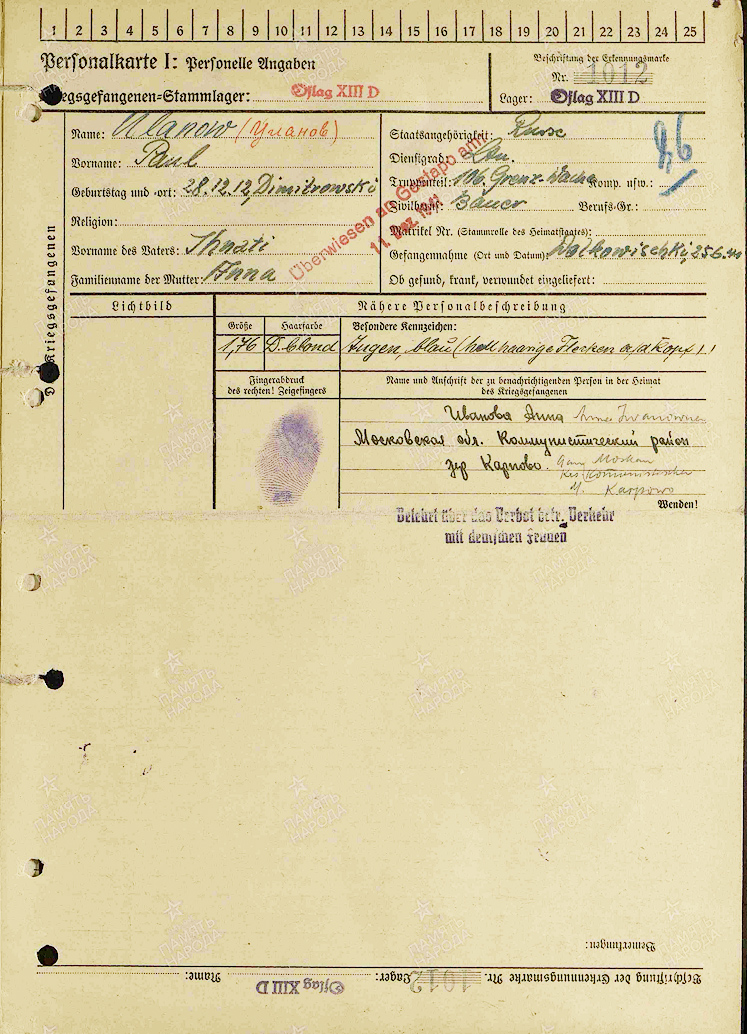 1 2 3 4 5 6 7 8 9 10 11 12 13 14 15 16 17 18 19 20 21 22 23 24 25
Personalkarte I: Personelle Angaben
Kriegsgefangenen-Stammlager: Oflag XIII D
Beschriftung der Erkennungsmarke
Nr. 1012
Lager: Oflag XIII D
Des Kriegsgefangenen
Name: Ulanow (Уланов)
Vorname: Paul
Geburtstag und -ort: 28.12.12, Dimitrowski
Religion:
Vorname des Vaters: Ihnati
Familienname der Mutter: Anna
Staatsangehörigkeit: Russe
Dienstgrad: Ltn.
Truppenteil: 106. Grenz-Wache Komp. usw.:
Zivilberuf: Bauer Berufs-Gr.:
Matrikel Nr. (Stammrolle des Heimatstaates):
Gefangennahme (Ort und Datum): Wolkowischki, 25.6.41
Ob gesund, krank, verwundet eingeliefert:
Überwiesen an Gestapo am:
11. Dez. 1941
Lichtbild
Nähere Personalbeschreibung
Größe Haarfarbe Besondere Kennzeichen:
1,76 D. blond Augen, blau (hellhaarige Flecken a/d Kopf)
Fingerabdruck
des rechten! Zeigefingers
Name und Anschrift der zu benachrichtigenden Person in der Heimat
des Kriegsgefangenen
Иванова Анна Anna Iwanowna
Московская обл. Коммунистический район
дер Карпово. Gau Moskau
Kreis Komunistischer
Karpowo
Wenden!
Belehrt über das Verbot betr. Verkehr
mit deutschen Frauen
ПАМЯТЬ
НАРОДА
Bemerkungen:
Beschriftung der Erkennungsmarke Nr. 1012 Lager: Oflag XIII D Name: